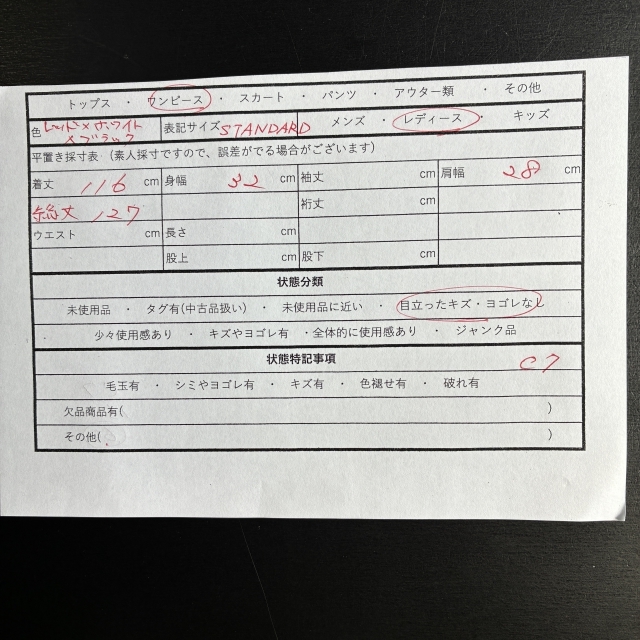 トップス ・ ワンピース ・ スカート ・ パンツ ・ アウター類 ・ その他
色 レッド×ホワイト×ブラック 表記サイズ STANDARD メンズ ・ レディース ・ キッズ
平置き採寸表 (素人採寸ですので、誤差がでる場合がございます)
着丈 116 cm 身幅 32 cm 袖丈 cm 肩幅 28 cm
総丈 127 裄丈 cm
ウエスト cm 長さ cm
股上 cm 股下 cm
状態分類
未使用品 ・ タグ有(中古品扱い) ・ 未使用品に近い ・ 目立ったキズ・ヨゴレなし
少々使用感あり ・ キズやヨゴレ有 ・全体的に使用感あり ・ ジャンク品
状態特記事項 C7
毛玉有 ・ シミやヨゴレ有 ・ キズ有 ・ 色褪せ有 ・ 破れ有
欠品商品有( )
その他( )